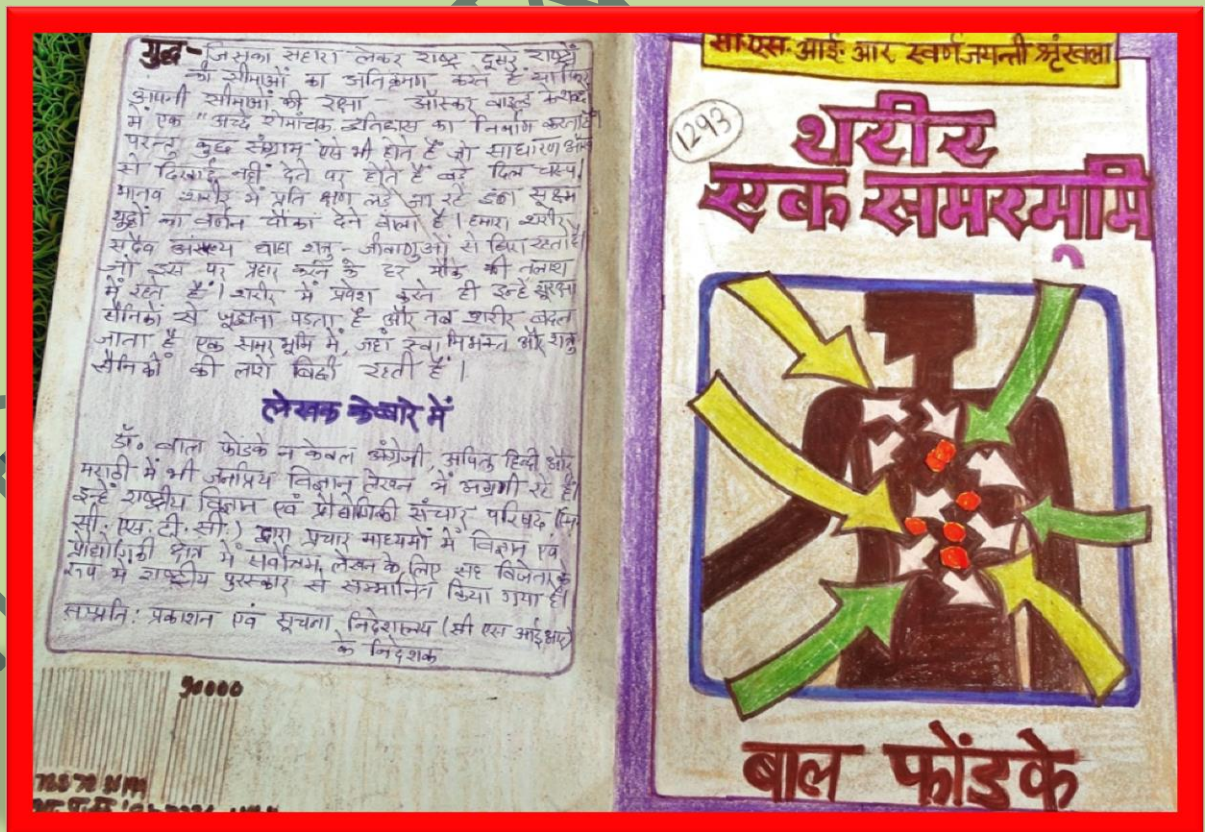 युद्ध - जिसका सहारा लेकर राष्ट्र दूसरे राष्ट्रों
की सीमाओं का अतिक्रमण करते हैं या फिर
अपनी सीमाओं की रक्षा - ऑस्कर वाइल्ड के शब्दों
में एक "अच्छे रोमांचक इतिहास का निर्माण करता है।
परन्तु कुछ संग्राम ऐसे भी होते हैं जो साधारण आँख
से दिखाई नहीं देते पर होते हैं बड़े दिल चस्प।
मानव शरीर में प्रति क्षण लड़े जा रहे इन सूक्ष्म
युद्धों का वर्णन चौंका देने वाला है। हमारा शरीर
सदैव असंख्य बाह्य शत्रु - जीवाणुओं से घिरा रहता है।
जो इस पर प्रहार करने के हर मौके की तलाश
में रहते हैं। शरीर में प्रवेश करते ही इन्हें सुरक्षा
सैनिकों से जूझना पड़ता है और तब शरीर बदल
जाता है एक समर भूमि में, जहां स्वामिभक्त और शत्रु
सैनिकों की लाशें बिछी रहती हैं।
लेखक के बारे में
डॉ. बाल फोंडके न केवल अंग्रेजी, अपितु हिन्दी और
मराठी में भी जनप्रिय विज्ञान लेखन में अग्रणी रहे हैं।
इन्हें राष्ट्रीय विज्ञान एवं प्रौद्योगिकी संचार परिषद
सी. एस. टी. सी.) द्वारा प्रचार माध्यमों में विज्ञान एवं
प्रौद्योगिकी क्षेत्र में सर्वोत्तम लेखन के लिए सह विजेता के
रूप में राष्ट्रीय पुरस्कार से सम्मानित किया गया है।
सम्प्रति: प्रकाशन एवं सूचना निदेशालय (सी एस आई आर)
के निदेशक
सी.एस.आई.आर स्वर्णजयन्ती श्रृंखला
1293
शरीर
एक समरभूमि
बाल फोंडके